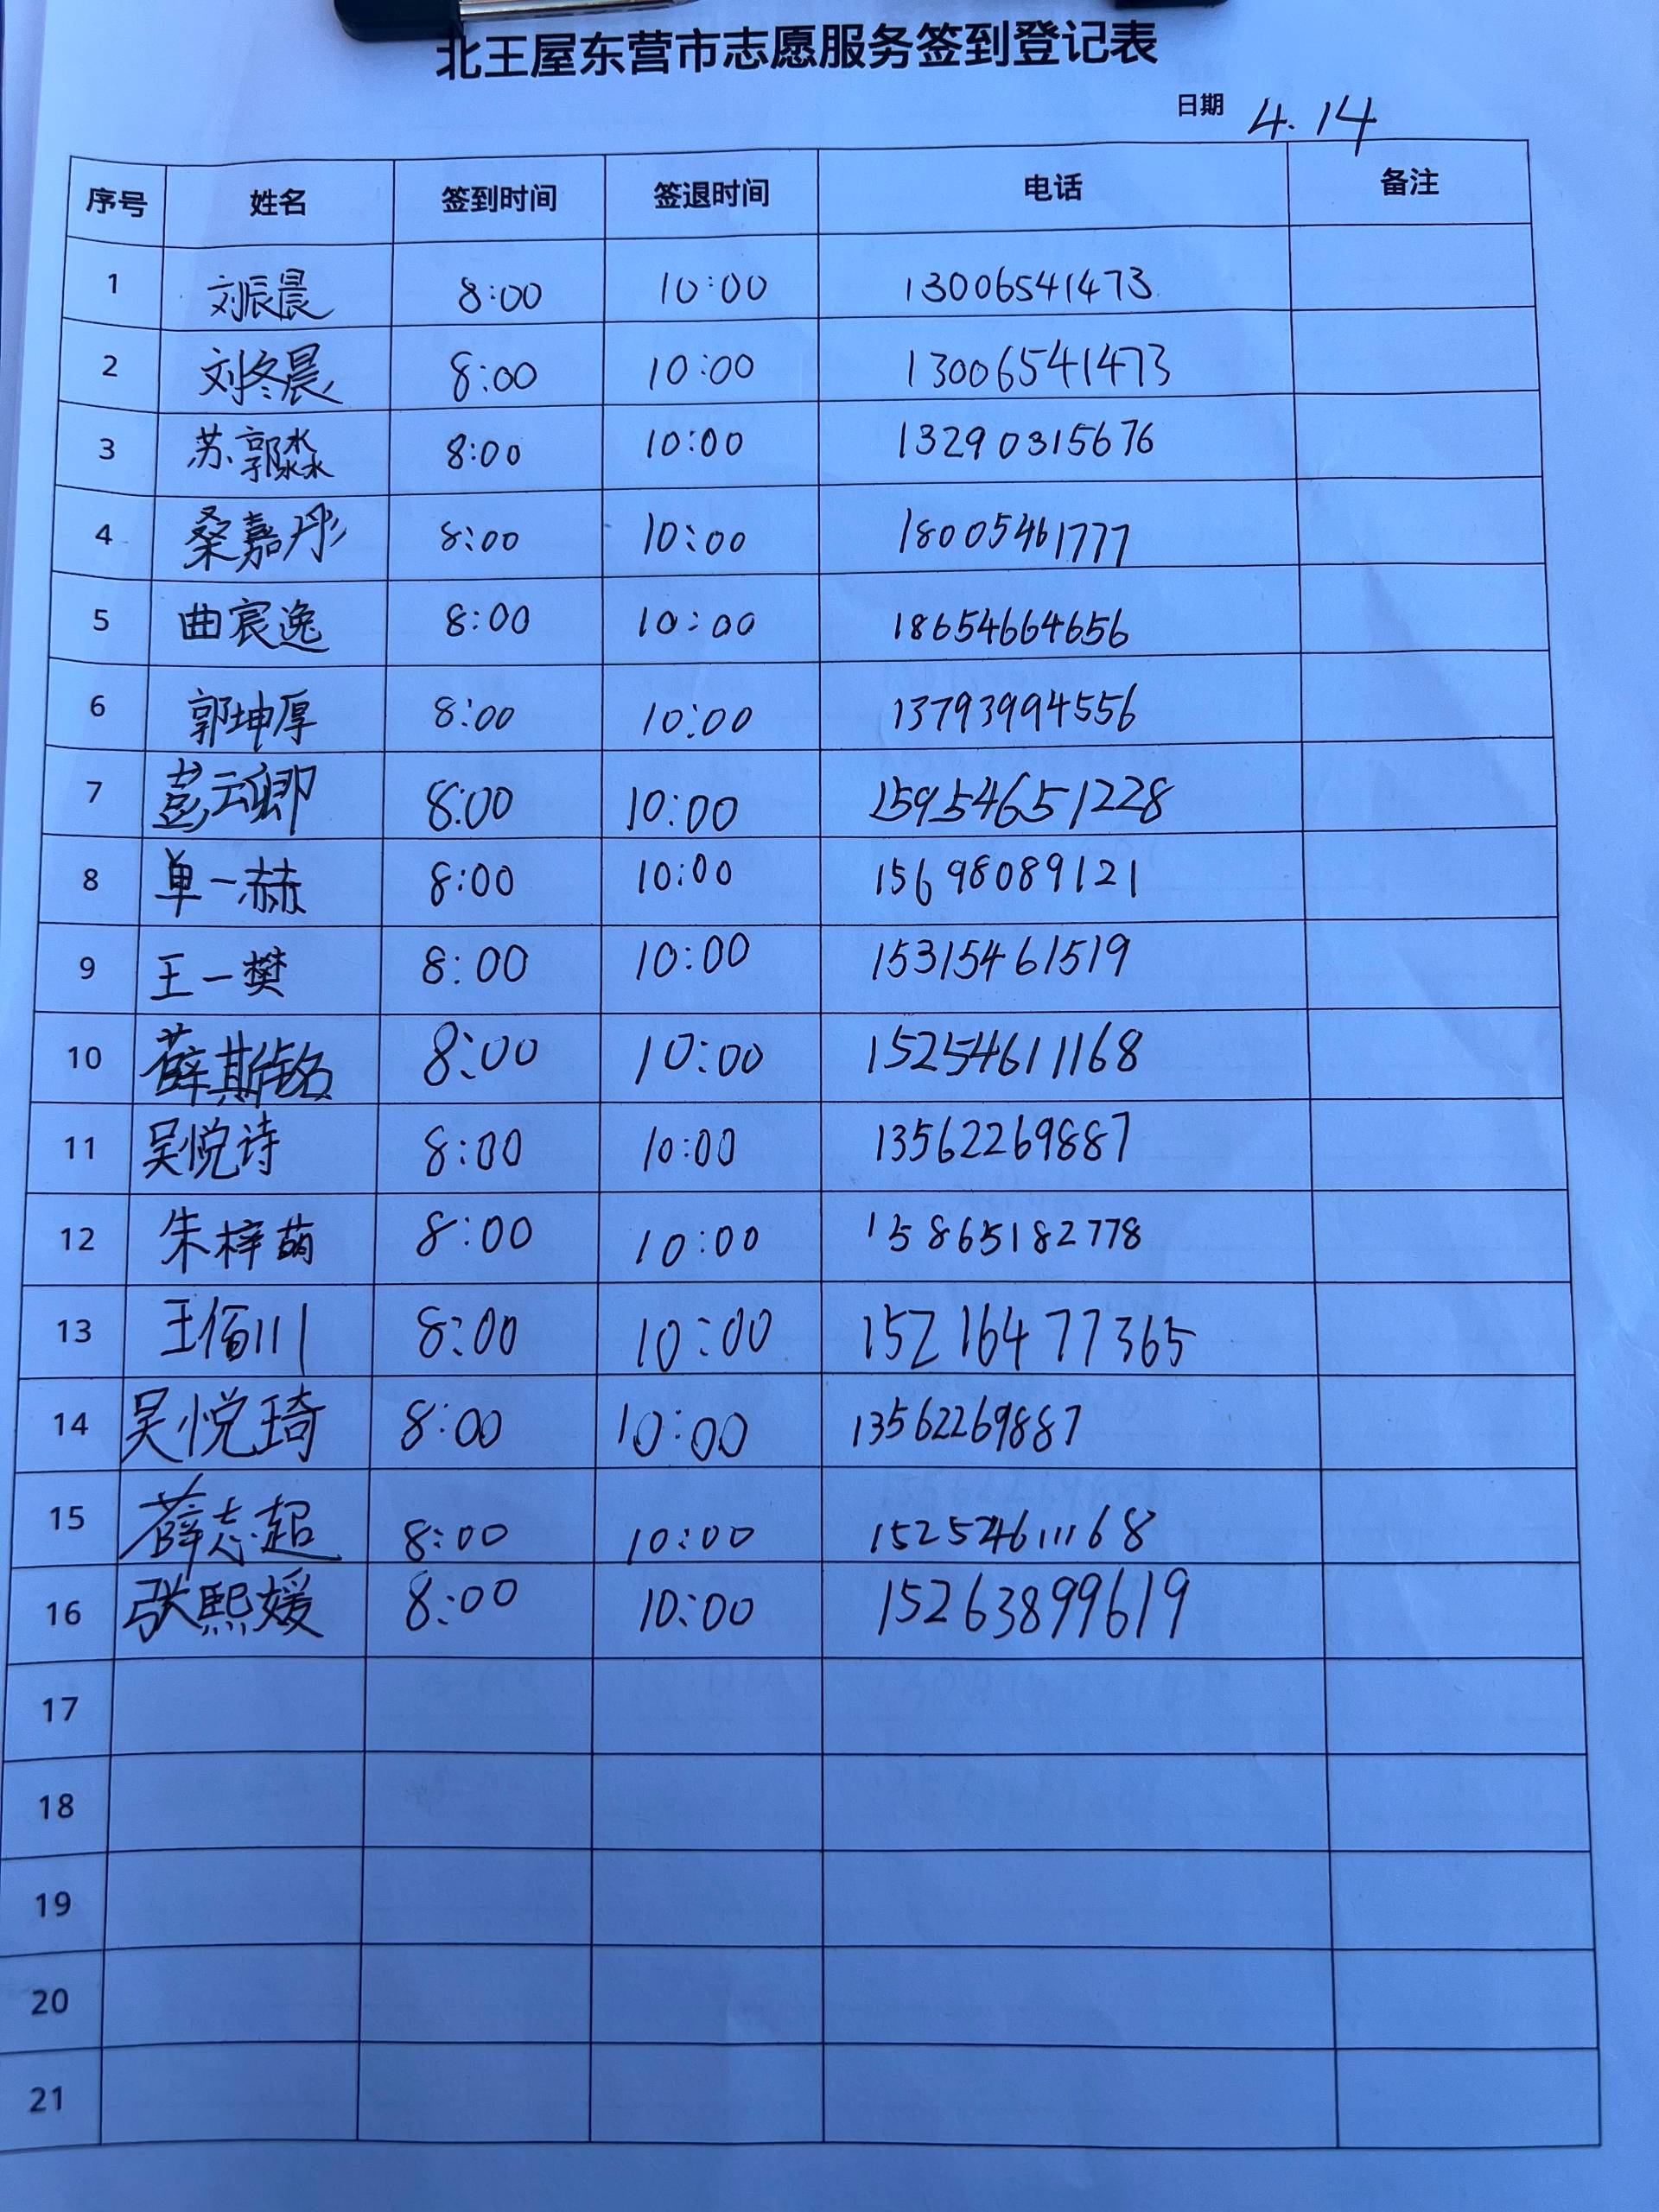 北王屋东营市志愿服务签到登记表
日期 4.14
序号 姓名 签到时间 签退时间 电话 备注
1 刘辰晨 8:00 10:00 13006541473
2 刘冬晨 8:00 10:00 13006541473
3 苏郭淼 8:00 10:00 13290315676
4 桑嘉彤 8:00 10:00 18005461777
5 曲宸逸 8:00 10:00 18654664656
6 郭坤厚 8:00 10:00 13793994556
7 彭云卿 8:00 10:00 15954651228
8 单一赫 8:00 10:00 15698089121
9 王一樊 8:00 10:00 15315461519
10 薛斯铭 8:00 10:00 15254611168
11 吴悦诗 8:00 10:00 13562269887
12 朱梓萌 8:00 10:00 15865182778
13 王佰川 8:00 10:00 15216477365
14 吴悦琦 8:00 10:00 13562269887
15 薛志超 8:00 10:00 15254611168
16 张熙媛 8:00 10:00 15263899619
17
18
19
20
21